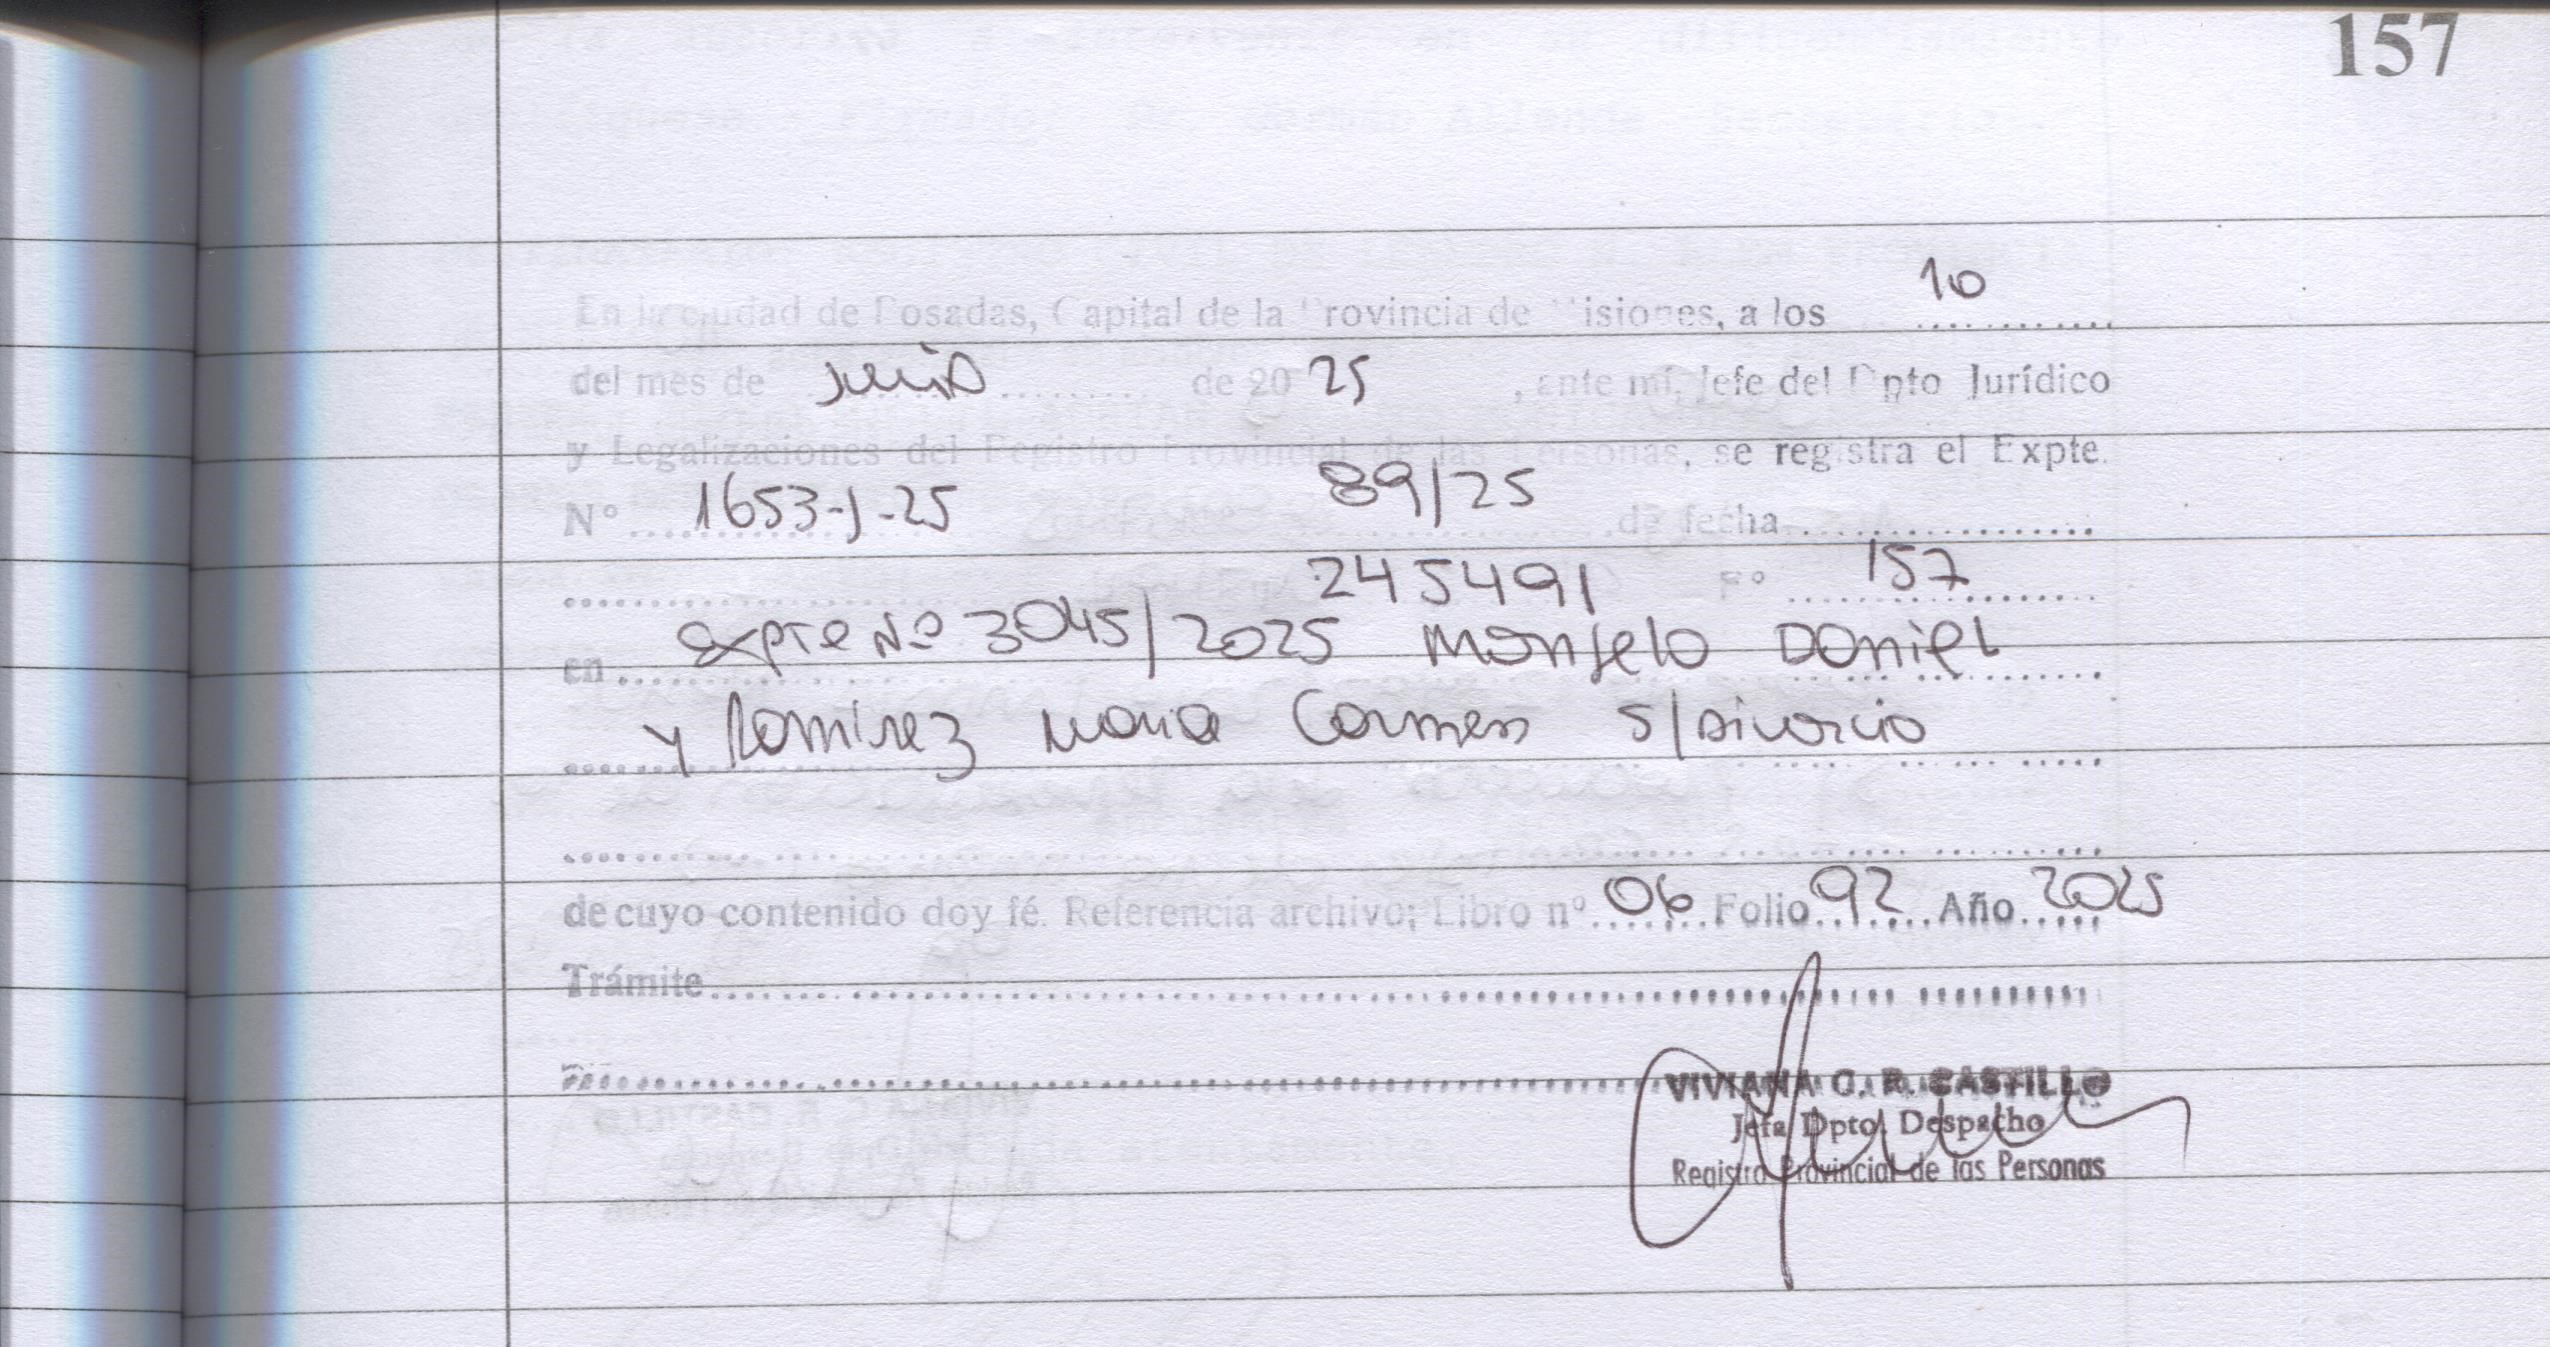 157
En la ciudad de Posadas, Capital de la Provincia de Misiones, a los 10
del mes de Julio de 2025, ante mi, Jefe del Dpto Jurídico
y Legalizaciones del Registro Provincial de las Personas, se registra el Expte.
Nº 1653-J-25 89/25 de fecha
245491 Fº 157
en Expte Nº 3045/2025 Monjelo Daniel
y Ramirez Maria Carmen s/divorcio
de cuyo contenido doy fé. Referencia archivo; Libro nº 06 Folio 92 Año 2025
Trámite
VIVIANA C. R. CASTILLO
Jefa Dpto. Despacho
Registro Provincial de las Personas